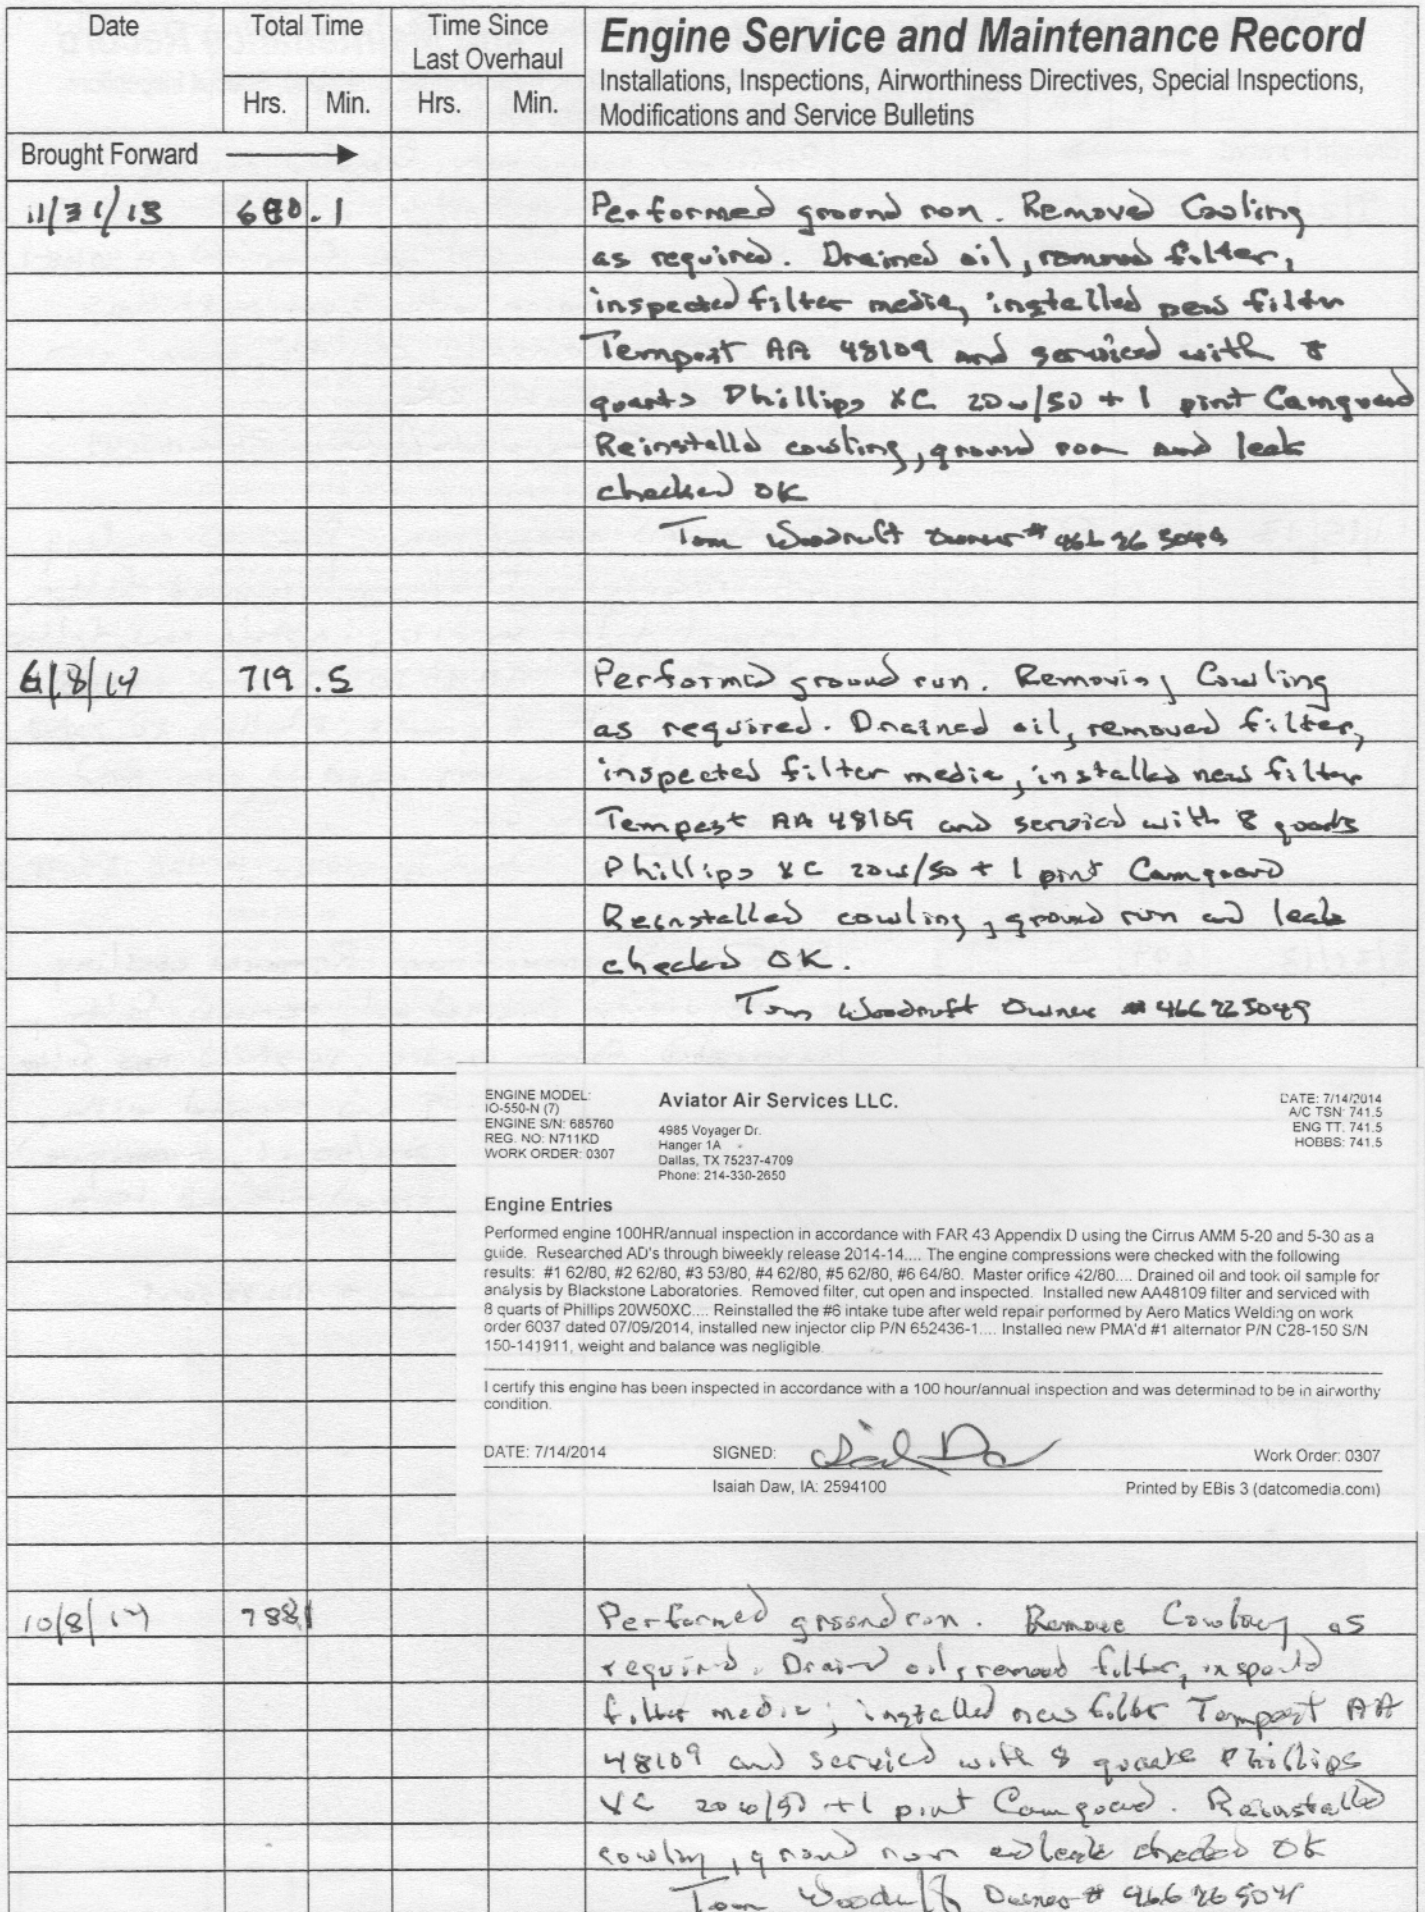 Date
Total Time
Time Since
Last Overhaul
Engine Service and Maintenance Record
Installations, Inspections, Airworthiness Directives, Special Inspections,
Modifications and Service Bulletins
Hrs. Min. Hrs. Min.
Brought Forward
11/31/13 680.1 Performed ground run. Removed Cowling
as required. Drained oil, removed filter,
inspected filter media, installed new filter
Tempest AA 48109 and serviced with 8
quarts Phillips XC 20w/50 + 1 pint Camguard
Reinstalld cowling, ground run and leak
checked OK
Tom Woodruff Owner #
6/8/14 719.5 Performed ground run. Removing Cowling
as required. Drained oil, removed filter,
inspected filter media, installed new filter
Tempest AA 48109 and serviced with 8 quarts
Phillips XC 20w/50 + 1 pint Camguard
Reinstalled cowling, ground run and leak
checked OK.
Tom Woodruff Owner #
ENGINE MODEL:
IO-550-N (7)
ENGINE S/N: 685760
REG. NO: N711KD
WORK ORDER: 0307
Aviator Air Services LLC.
4985 Voyager Dr.
Hanger 1A
Dallas, TX 75237-4709
Phone: 214-330-2650
DATE: 7/14/2014
A/C TSN: 741.5
ENG TT: 741.5
HOBBS: 741.5
Engine Entries
Performed engine 100HR/annual inspection in accordance with FAR 43 Appendix D using the Cirrus AMM 5-20 and 5-30 as a
guide. Researched AD's through biweekly release 2014-14.... The engine compressions were checked with the following
results: #1 62/80, #2 62/80, #3 53/80, #4 62/80, #5 62/80, #6 64/80. Master orifice 42/80.... Drained oil and took oil sample for
analysis by Blackstone Laboratories. Removed filter, cut open and inspected. Installed new AA48109 filter and serviced with
8 quarts of Phillips 20W50XC.... Reinstalled the #6 intake tube after weld repair performed by Aero Matics Welding on work
order 6037 dated 07/09/2014, installed new injector clip P/N 652436-1.... Installed new PMA'd #1 alternator P/N C28-150 S/N
150-141911, weight and balance was negligible.
I certify this engine has been inspected in accordance with a 100 hour/annual inspection and was determined to be in airworthy
condition.
DATE: 7/14/2014 SIGNED: Work Order: 0307
Isaiah Daw, IA: 2594100 Printed by EBis 3 (datcomedia.com)
10/8/14 788.1 Performed ground run. Remove Cowling as
required. Drained oil, removed filter, inspected
filter media, installed new filter Tempest AA
48109 and serviced with 8 quarts Phillips
XC 20w/50 + 1 pint Camguard. Reinstalled
cowling, ground run and leak checked OK
Tom Woodruff Owner #